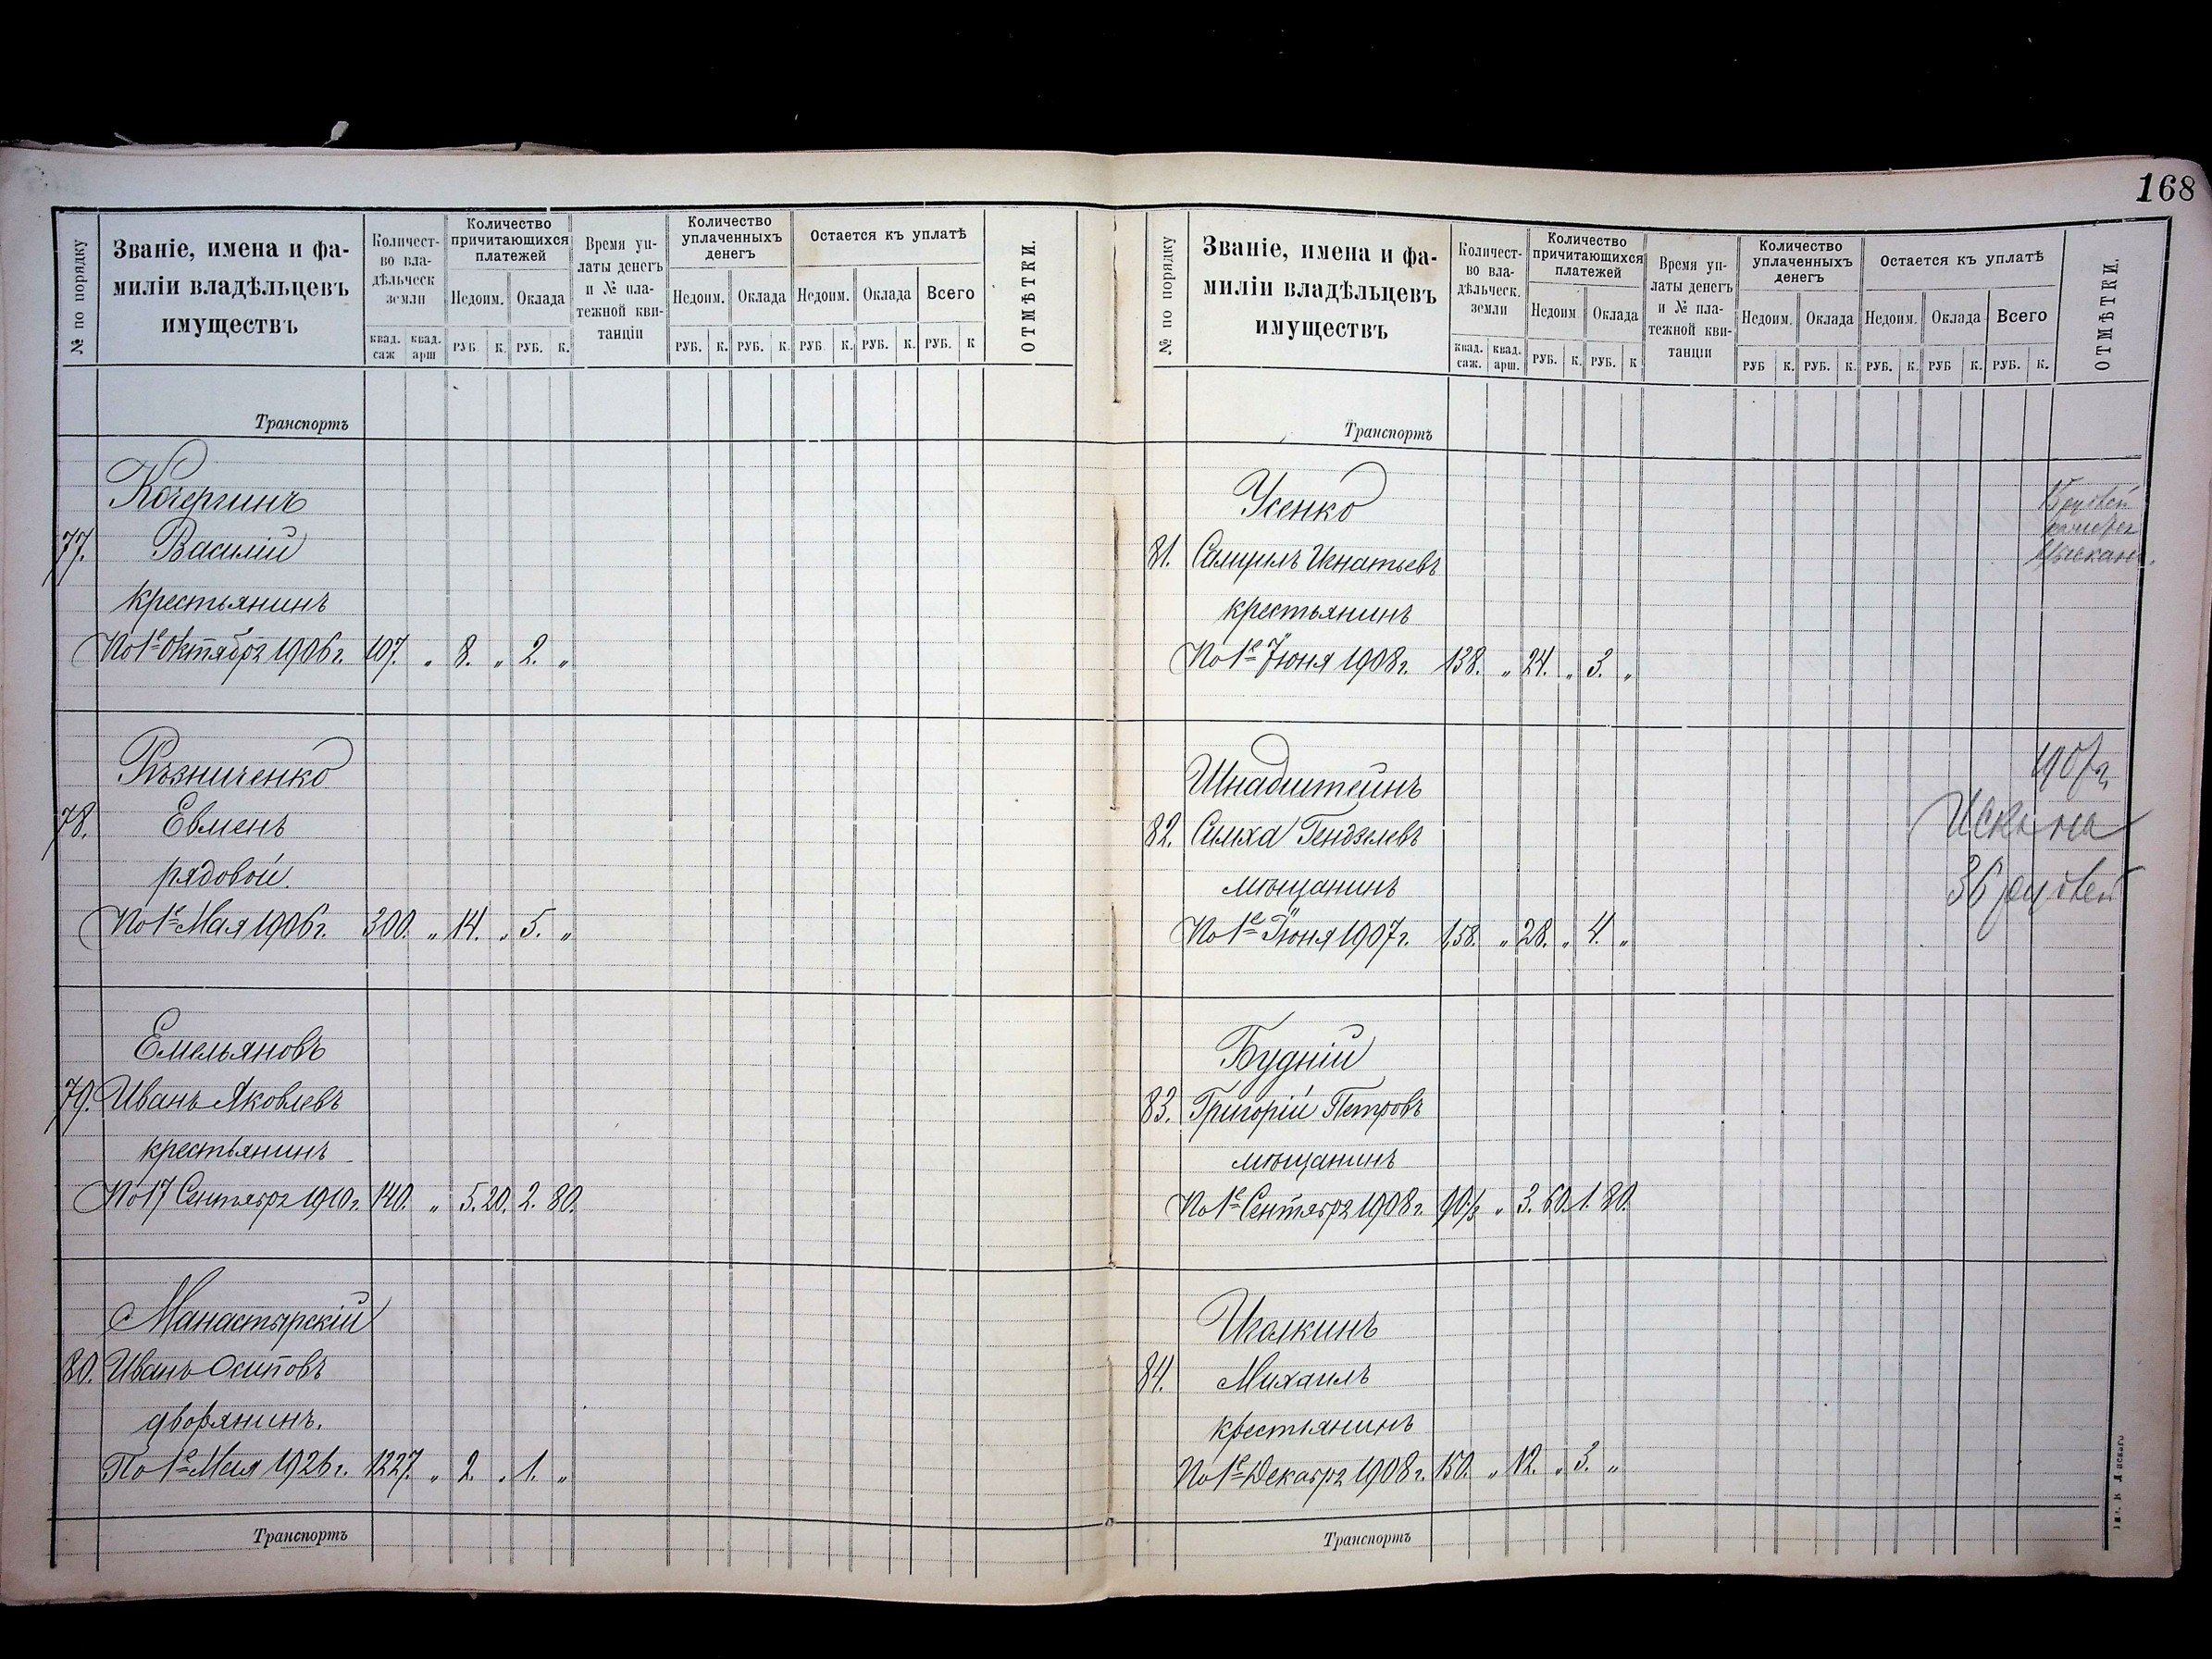 168
№ по порядку
Званіе, имена и фа-
миліи владѣльцевъ
имуществъ
Количест-
во вла-
дѣльческ
земли
квад. саж квад. арш
Количество
причитающихся
платежей
Недоим. Оклада
РУБ К. РУБ. К.
Время уп-
латы денегъ
и № пла-
тежной кви-
танціи
Количество
уплаченныхъ
денегъ
Недоим. Оклада
РУБ. К. РУБ. К.
Остается къ уплатѣ
Недоим. Оклада Всего
РУБ К. РУБ. К. РУБ. К
ОТМѢТКИ.
Транспортъ
Кочергинъ
77. Василій
крестьянинъ
По 1е Октября 1906 г. 107. „ 8. „ 2. „
Рѣзниченко
78. Евмень
рядовой.
По 1е Мая 1906 г. 300. „ 14. „ 5. „
Емельяновъ
79. Иванъ Яковлевъ
крестьянинъ
По 17 Сентября 1910 г. 140. „ 5. 20. 2. 80.
Манастырскій
80. Иванъ Осиповъ
дворянинъ.
По 1е Мая 1926 г. 1227. „ 2. „ 1. „
Транспортъ
№ по порядку
Званіе, имена и фа-
миліи владѣльцевъ
имуществъ
Количест-
во вла-
дѣльческ.
земли
квад. саж. квад. арш.
Количество
причитающихся
платежей
Недоим Оклада
РУБ. К. РУБ. К
Время уп-
латы денегъ
и № пла-
тежной кви-
танціи
Количество
уплаченныхъ
денегъ
Недоим. Оклада
РУБ К. РУБ. К.
Остается къ уплатѣ
Недоим. Оклада Всего
РУБ. К. РУБ К. РУБ. К.
ОТМѢТКИ.
Транспортъ
Усенко
81. Игнатьевъ
крестьянинъ
По 1е Іюня 1908 г. 138. „ 24. „ 3. „
Шнадштейнъ
82. Симха Гендзелевъ
мѣщанинъ
По 1е Іюня 1907 г. 158. „ 28. „ 4. „
1907 г.
Искъ на
36 рублей
Будній
83. Григорій Петровъ
мѣщанинъ
По 1е Сентября 1908 г. 90½ „ 3. 60. 1. 80.
Иголкинъ
84. Михаилъ
крестьянинъ
По 1е Декабря 1908 г. 150. „ 12. „ 3. „
Транспортъ